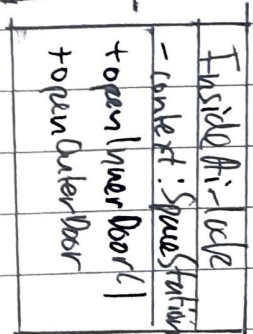 InsideAirlock
-context: SpaceStation
+openInnerDoor()
+openOuterDoor